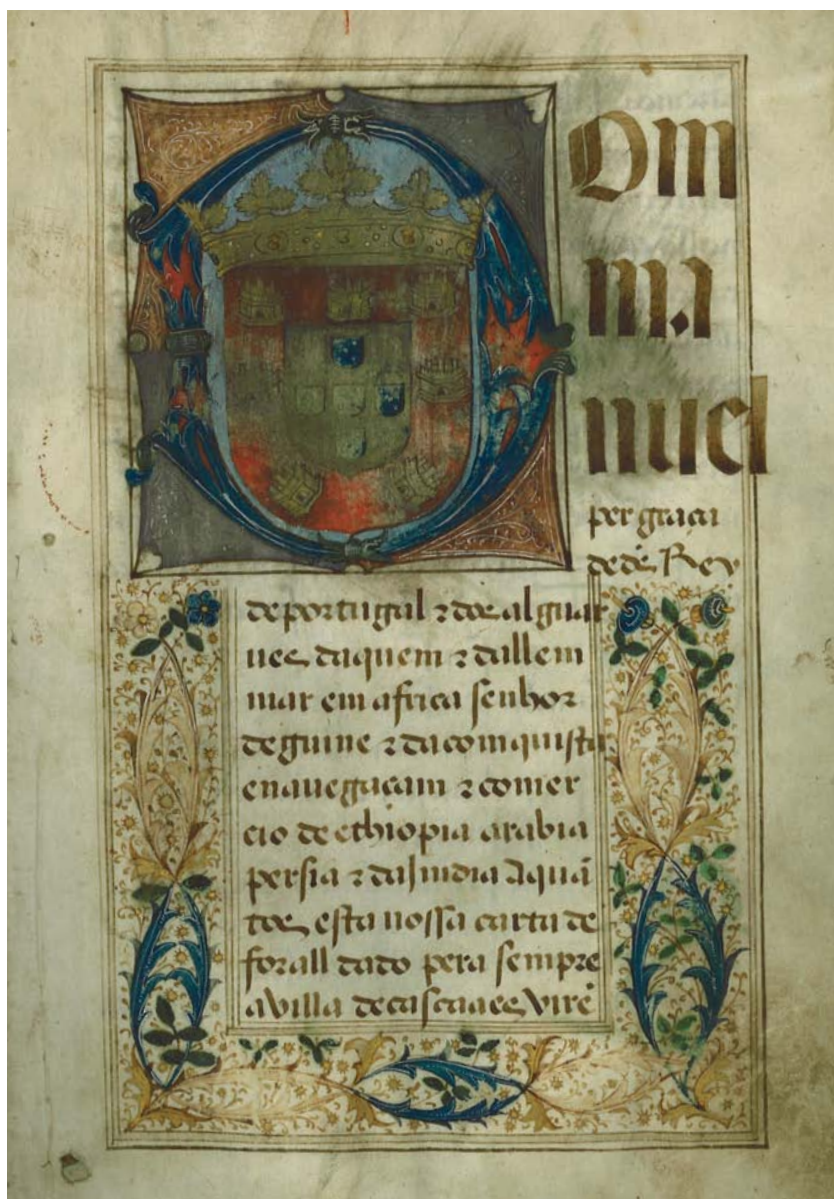 Dom
ma
nuel
per graca
de ds̃ Rey
de portugal ⁊ dos alguar
ues daquem ⁊ dallem
mar em africa senhor
de guine ⁊ da comquista
e nauegaçam ⁊ comer
cio de ethiopia arabia
persia ⁊ da Jndia A quã
tos esta nossa carta de
forall dado pera sempre
a villa de cascaaes virẽ